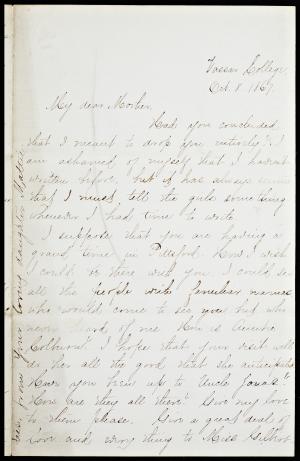 Vassar College,
Oct. 8. 1867.
My dear Mother,
Had you concluded
that I meant to drop you entirely? I
am ashamed of myself that I havent
written before, but it has always seemed
that I must tell the girls something
whenever I had time to write
I suppose that you are having a
grand time in Pittsford. How I wish
I could be there with you. I could see
all the people with familiar names
who would come to see you but who
never heard of me. How is Auntie
Colburn? I hope that your visit will
do her all the good that she anticipates
Have you been up to Uncle Jonas'?
How are they all there? Give my love
to them please. Give a great deal of
love and every thing to Miss
from your loving daughter Mattie.